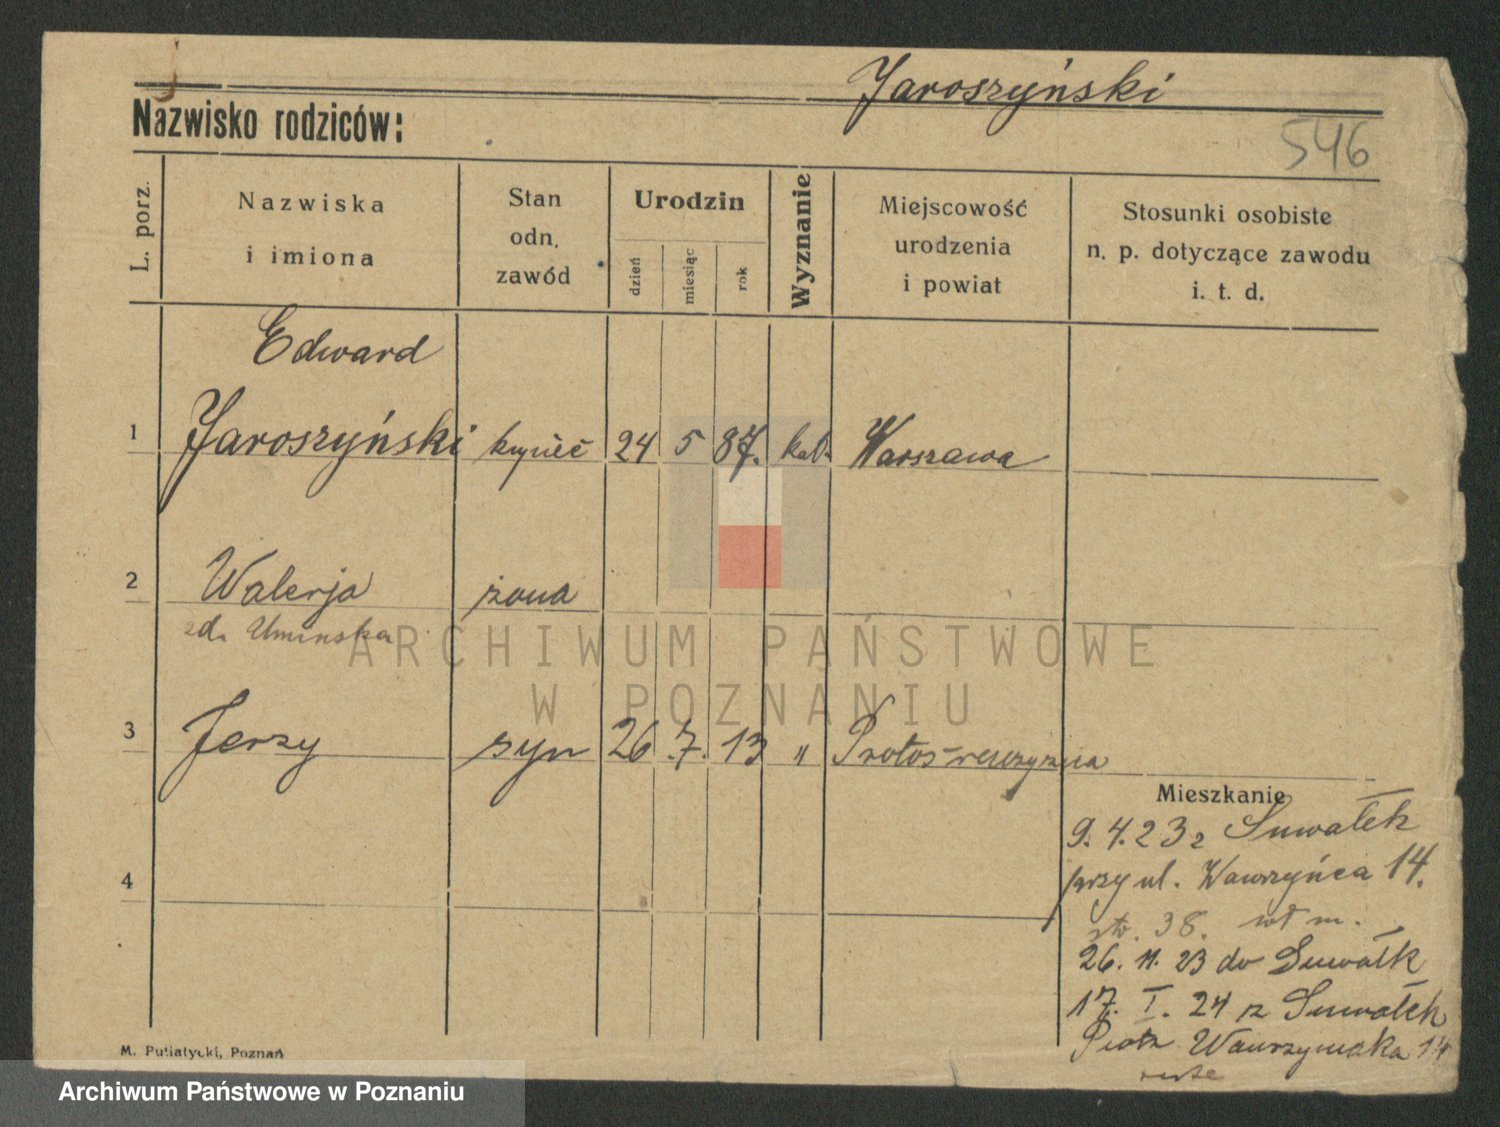 Jaroszyński
Nazwisko rodziców:
546
L. porz.
Nazwiska
i imiona
Stan
odn.
zawód
Urodzin
dzień
miesiąc
rok
Wyznanie
Miejscowość
urodzenia
i powiat
Stosunki osobiste
n. p. dotyczące zawodu
i. t. d.
Edward
1 Jaroszyński kupiec 24 5 87. kat. Warszawa
2 Walerja żona
zd. Umińska
3 Jerzy syn 26 7. 13 "
Mieszkanie
9. 4. 23 z Suwałek
przy ul. Wawrzyńca 14.
38.
26. 11. 23 do Suwałk
17. I. 24 z Suwałek
Piotr Wawrzyniaka 14
4
M. Putiatycki, Poznań
ARCHIWUM PAŃSTWOWE
W POZNANIU
Archiwum Państwowe w Poznaniu